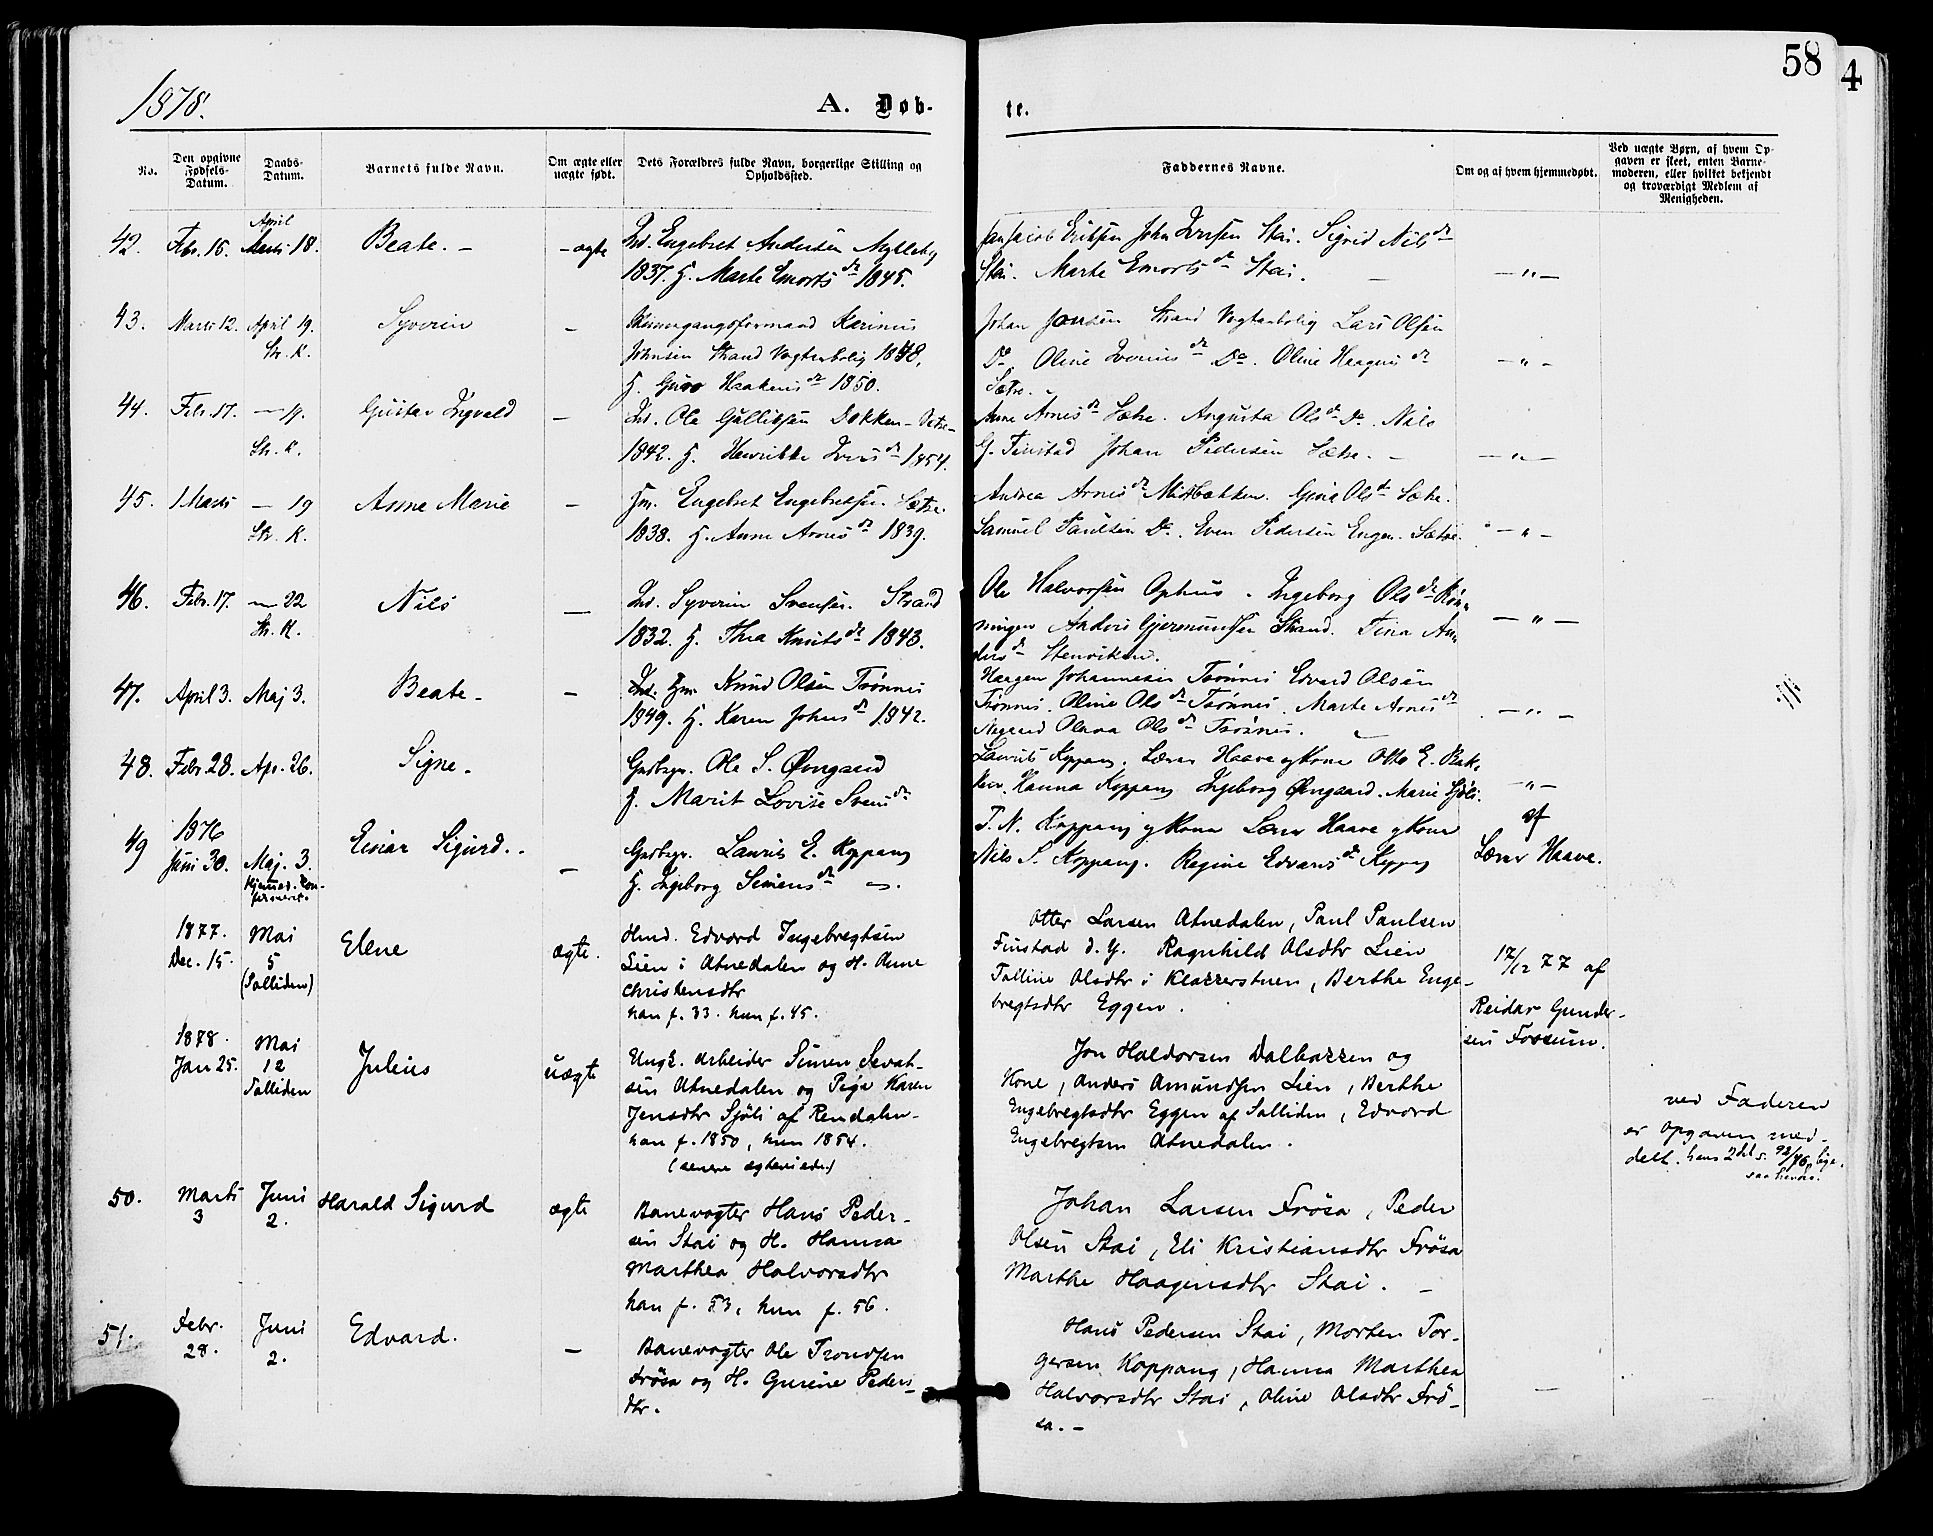 58
4
1878.
A. Døb-
te.
No.
Den opgivne Fødsels-Datum.
Daabs-Datum.
Barnets fulde Navn.
Om ægte eller uægte født.
Dets Forældres fulde Navn, borgerlige Stilling og Opholdssted.
Faddernes Navne.
Om og af hvem hjemmedøbt.
Ved uægte Børn, af hvem Opgaven er skeet, enten Barnemoderen, eller hvilket bekjendt og troværdigt Medlem af Menigheden.
42. Febr. 15. April 18. Beate. – – ægte
Ind. Engebret Andersen
1837. H. Marte Emorts dr 1845.
Eriksen John Iversen Stai. Sigrid Nils dr
Stai. Marte Emorts dr Stai. –
– " –
43. Marts 12. April 19. Syverin –
Str. K.
Karinus
Johnsen Strand Vogterbolig 1848.
H. Guro Haakens dr 1850.
Johan Jonsen Strand Vogterbolig Lars Olsen
Do Oline Iverus dr Do. Oline Haagens dr
Sætre.
– " –
44. Febr. 17. – 19. Gustav Ingvald –
Str. K.
Ind. Ole Gulliksen Dokken – Sætre –
1842. H. Henrikke Ivers dr 1854.
Anne Arnes dr Sætre. Augusta Ols dr Do. Nils
G. Finstad Johan Pedersen Sætre. –
– " –
45. 1 Marts – 19 Anne Marie –
Str. K.
Hm. Engebret Engebretsen. Sætre.
1838. H. Anne Arnes dr 1839.
Andrea Arnes dr Midtbakken. Gina Ols dr Sætre.
Samuel Paulsen Do. Even Pedersen Engen. Sætre.
– " –
46. Febr. 17. – 22 Nils –
Str. K.
Ind. Syverin Svensen. Strand
1832. H. Thea Knuts dr 1843.
Ole Halvorsen Ophus. Ingeborg Ols dr Røn-
ningen Anders Gjermundsen Strand. Tina An-
ders dr Stenviken.
– " –
47. April 3. Maj 3. Beate – –
Ind. Hm. Knud Olsen Trønnes
1849. H. Karen Johns dr 1842.
Haagen Johannesen Trønnes Edvard Olsen
Trønnes. Oline Ols dr Trønnes. Marte Arnes dr
Negaard Olava Ols dr Trønnes.
– " –
48. Febr. 28. Apr. 26. Signe.
Gaardbgr. Ole S. Øvrgaard
H. Marit Lovise Svens dr
Laurits Koppang. Lærer Haave og Kone Otto E. Bak-
ken. Hanna Koppang Ingeborg Øvrgaard. Marie Sjøli.
– " –
49 1876 Juni 30. Maj. 3. Einar Sigurd. –
Hjemmed. Con-
firmeret.
Gaardbgr. Laurits E. Koppang
H. Ingeborg Simens dr –.
T. N. Koppang og Kone Lærer Haave og Kone
Nils S. Koppang. Regine Edvards dr Koppang
af
Lærer Haave.
1877. Dec. 15. Mai 5 (Solliden) Elene ægte.
Hmd. Edvard Ingebregtsen
Lien i Atnedalen og H. Anne
Christensdtr
han f. 33. hun f. 45.
Otter Larsen Atnedalen, Paul Paulsen
Finstad d. y. Ragnhild Olsdtr Lien
Talline Olsdtr i Klokkerstuen, Berthe Enge-
bregtsdtr Eggen.
17/12 77 af
Reidar Gunder-
sen Fossum.
1878. Jan 25. Mai 12 Solliden Julius uægte
Ungk. Arbeider Simen Sevat-
sen Atnedalen og Pige Karen
Jensdtr Sjøli af Rendalen –
han f. 1850, hun 1854.
(senere ægteviede)
Jon Haldorsen Dalbakken og
Kone, Anders Amundsen Lien, Berthe
Engebregtsdtr Eggen af Solliden, Edvard
Engebregtsen Atnedalen.
ved Faderen
er Opgaven med-
delt. hans 2det s. lige-
saa hendes.
50. Marts 3 Juni 2. Harald Sigurd ægte
Banevogter Hans Peder-
sen Stai og H. Hanna
Marthea Halvorsdtr
han f. 53, hun f. 56.
Johan Larsen Frøsa, Peder
Olsen Stai, Eli Kristiansdtr Frøsa
Marthe Haagensdtr Stai. –
51. Febr. 28. Juni 2. Edvard. –
Banevogter Ole Trondsen
Frøsa og H. Gurine Peders-
dtr.
Hans Pedersen Stai, Morten Tor-
gersen Koppang, Hanna Marthea
Halvorsdtr Stai, Oline Olsdtr Frø-
sa. –
–